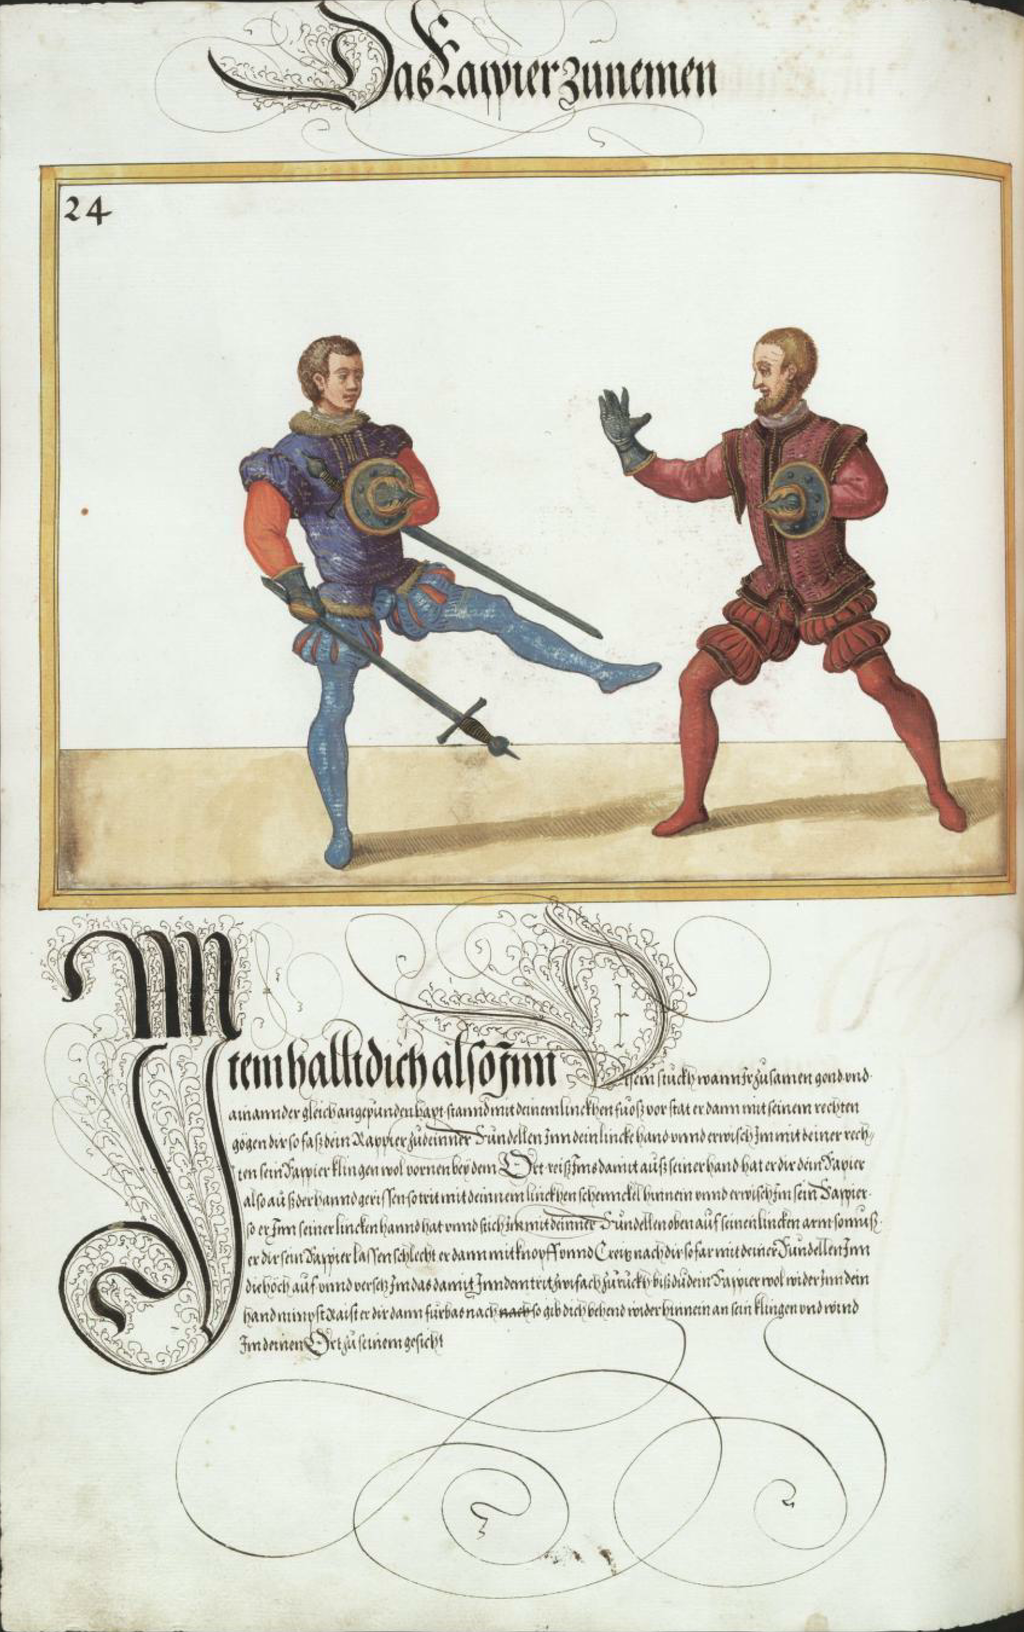 Das Rappier zunemen
24
Item hallt dich also Jnn Disem stuckh wann Jr zusamen gond vnd
ainannder gleich angepunden hapt stannd mit deinem linckhen fuosz vor stat er dann mit seinem rechten
gögen dir so fasz dein Rappier zu deinner Rundellen Jnn dein lincke hand vnnd erwisch Jm mit deiner rech=
ten sein Rappier klingen wol vornen bey dem Ort reisz Jms damit ausz seiner hand hat er dir dein Rapier
also ausz der hannd gerissen so trit mit deinnem linckhen schennckel hinnein vnnd erwisch Jm sein Rappier
so er Jnn seiner lincken hannd hat vnnd stich Jm mit deinner Rundellen oben auf seinen lincken arm so musz
er dir sein Rappier lassen schlecht er dann mit knopff vnnd Creitz nach dir so far mit deiner Rundellen Jnn
die höch auf vnnd versetz Jm das damit Jnn dem trit zwifach zurückh bisz du dein Rappier wol wider Jnn dein
hand nimpst Raist er dir dann fürbas nach nach so gib dich behend wider hinnein an sein klingen vnd wind
Jm deinen Ort zu seinem gesicht